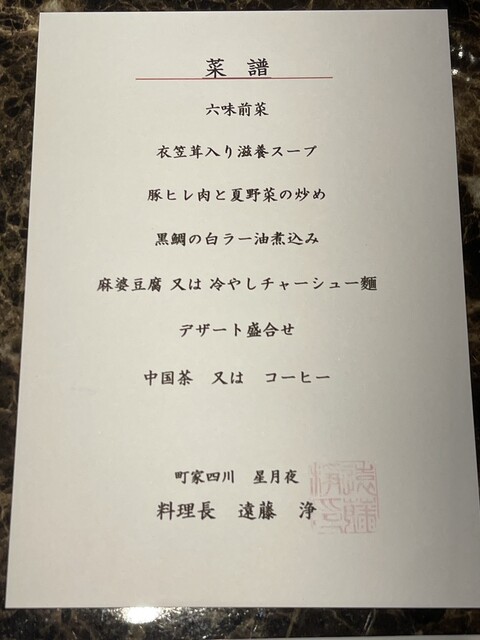 菜譜
六味前菜
衣笠茸入り滋養スープ
豚ヒレ肉と夏野菜の炒め
黒鯛の白ラー油煮込み
麻婆豆腐 又は 冷やしチャーシュー麵
デザート盛合せ
中国茶 又は コーヒー
町家四川 星月夜
料理長 遠藤 浄